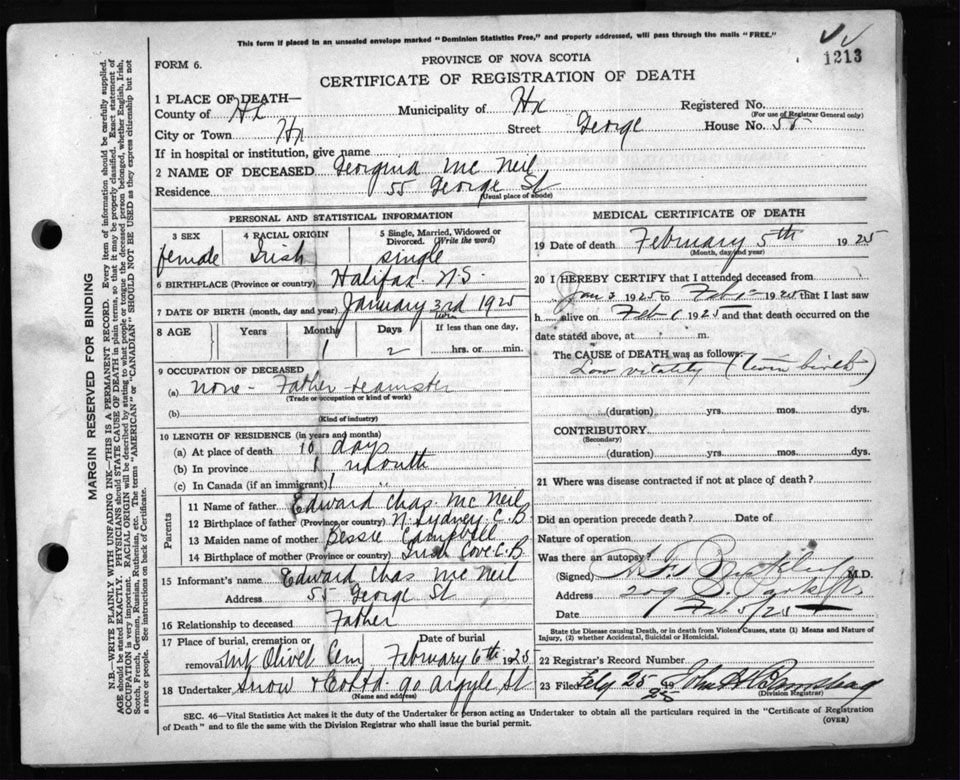 This form if placed in an unsealed envelope marked "Dominion Statistics Free," and properly addressed, will pass through the mails "FREE."
1213
FORM 6.
PROVINCE OF NOVA SCOTIA
CERTIFICATE OF REGISTRATION OF DEATH
1 PLACE OF DEATH—
County of Hx Municipality of Hx Registered No.
(For use of Registrar General only)
City or Town Hx Street George House No. 55
If in hospital or institution, give name
2 NAME OF DECEASED Georgina Mc Neil
Residence 55 George St
(Usual place of abode)
PERSONAL AND STATISTICAL INFORMATION
3 SEX 4 RACIAL ORIGIN 5 Single, Married, Widowed or Divorced. (Write the word)
female Irish single
6 BIRTHPLACE (Province or country) Halifax N.S.
7 DATE OF BIRTH (month, day and year) January 3rd 1925
twin
8 AGE Years Months Days If less than one day,
1 2 hrs. or min.
9 OCCUPATION OF DECEASED
(a) none - Father teamster
(Trade or occupation or kind of work)
(b)
(Kind of industry)
10 LENGTH OF RESIDENCE (in years and months)
(a) At place of death 10 days
(b) In province 1 month
(c) In Canada (if an immigrant) 1 "
Parents
11 Name of father Edward Chas. Mc Neil
12 Birthplace of father (Province or country) N. Sydney C.B
13 Maiden name of mother Bessie Campbell
14 Birthplace of mother (Province or country) Irish Cove C.B.
15 Informant's name Edward Chas Mc Neil
Address 55 George St
16 Relationship to deceased Father
17 Place of burial, cremation or removal Mt Olivet Cem Date of burial February 6th 1925
18 Undertaker Snow & Co Ltd 90 Argyle St
(Name and address)
MEDICAL CERTIFICATE OF DEATH
19 Date of death February 5th 1925
(Month, day and year)
20 I HEREBY CERTIFY that I attended deceased from
Jan 3 1925 to Feb 1925 that I last saw
h alive on Feb 1 1925 and that death occurred on the
date stated above, at m.
The CAUSE of DEATH was as follows:
Low vitality (twin birth)
(duration) yrs. mos. dys.
CONTRIBUTORY
(Secondary)
(duration) yrs. mos. dys.
21 Where was disease contracted if not at place of death?
Did an operation precede death? Date of
Nature of operation
Was there an autopsy?
(Signed) M.D.
Address 209
Date Feb 5/25
State the Disease causing Death, or in death from Violent Causes, state (1) Means and Nature of Injury, (2) whether Accidental, Suicidal or Homicidal.
22 Registrar's Record Number
23 Filed 25 John
(Division Registrar)
SEC. 46—Vital Statistics Act makes it the duty of the Undertaker or person acting as Undertaker to obtain all the particulars required in the "Certificate of Registration
of Death" and to file the same with the Division Registrar who shall issue the burial permit. (OVER)
MARGIN RESERVED FOR BINDING
N.B.—WRITE PLAINLY WITH UNFADING INK—THIS IS A PERMANENT RECORD. Every item of information should be carefully supplied.
AGE should be stated EXACTLY. PHYSICIANS should STATE CAUSE OF DEATH in plain terms, so that it may be properly classified. Exact statement of
OCCUPATION is very important. RACIAL ORIGIN will be described by stating to what people or tongue the deceased person belonged, whether English, Irish,
Scotch, French, German, Russian, Ruthenian, etc. The terms "AMERICAN" or "CANADIAN" SHOULD NOT BE USED as they express citizenship but not
a race or people. See instructions on back of Certificate.